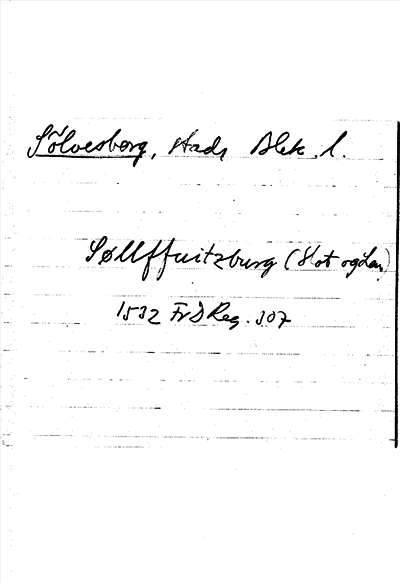 Sölvesborg, stad, Blek. l.
Søllffuitzburg (Slot og Len)
1532 FrDReg. 307